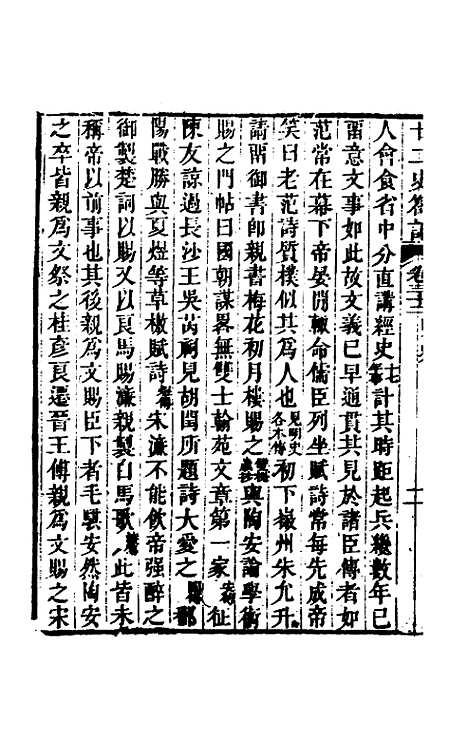 廿二史劄記 卷三十二 明史
人會食省中分直講經史本紀計其時距起兵纔數年已
留意文事如此故文義已早通貫其見於諸臣傳者如
范常在幕下帝宴閒輒命儒臣列坐賦詩常每先成帝
笑曰老范詩質樸似其為人也見明史各本傳初下徽州朱允升
請留御書即親書梅花初月樓賜之與陶安論學術
賜之門帖曰國朝謀畧無雙士翰苑文章第一家安傳征
陳友諒過長沙王吳芮祠見胡閏所題詩大愛之閏傳鄱
陽戰勝與夏煜等草檄賦詩煜傳宋濂不能飲帝强醉之
御製楚詞以賜又以良馬賜濂親製白馬歌濂傳此皆未
稱帝以前事也其後親為文賜臣下者毛騏安然陶安
之卒皆親為文祭之桂彥良遷晉王傅親為文賜之宋